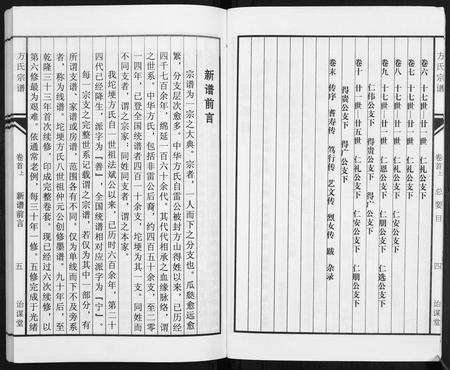 方氏宗谱
卷首上
总要目
四
治谋堂
卷六 十七世 廿一世 仁礼公支下
卷七 十七世 廿一世 仁礼公支下
卷八 十七世 廿一世 仁礼公支下 仁安公支下
卷九 十七世 廿一世 仁恩公支下 仁朋公支下 仁选公支下
仁伟公支下 得贵公支下 得广公支下
卷十 廿一世 廿五世 仁礼公支下 仁安公支下 仁朋公支下
得贵公支下 得广公支下
卷末 传序 耆寿传 笃行传 艺文传 烈女传 跋 杂录
新谱前言
宗谱为一宗之大典。宗者，一人而下之分支也。瓜瓞愈远愈
繁，分支层次愈多。中华方氏自雷公被封方山得姓以来，已历经
四千七百余年，绵延一百六十余代。其代代相承之血缘脉络，谓
之世系，中华方氏，包括非雷公后裔，约四百五十余支，至二零
一四年，已登全国统谱者四百一十余支，坨埂为其一支。同姓而
不同支者，谓之宗家；同姓同支者，谓之本家。
我坨埂方氏自一世祖法斌公以来，已历时六百余年，第二十
四代已经降生，派字为“善”，全国统谱相对应派字为“宁”。
每一宗支之完整世系记载谓之宗谱，若仅为其中一部分，有
所谓支谱、家谱或房谱，范围各有不同，仅为单线而下不及旁系
者，称为线谱。坨埂方氏八世祖仲元公创修墨谱。九十年后，至
乾隆三十三年首次续修，印成完整卷套。现已经过六次续修，以
第六修最为艰难。依通常老例，每三十年一修。五修完成于光绪
方氏宗谱
卷首上
新谱前言
五
治谋堂